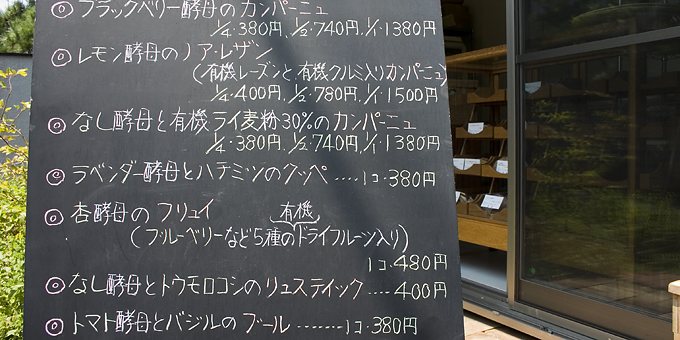 ◎ ブラックベリー酵母のカンパーニュ
1/4・380円, 1/2・740円, 1/1・1380円
◎ レモン酵母のノア・レザン
(有機レーズンと、有機クルミ入りカンパーニュ)
1/4・400円, 1/2・780円, 1/1・1500円
◎ なし酵母と有機ライ麦粉30%のカンパーニュ
1/4・380円, 1/2・740円, 1/1・1380円
◎ ラベンダー酵母とハチミツのクッペ ....1コ・380円
◎ 杏酵母のフリュイ
有機
(ブルーベリーなど5種のドライフルーツ入り)
1コ・480円
◎ なし酵母とトウモロコシのリュスティック ....400円
◎ トマト酵母とバジルのブール .......1コ・380円